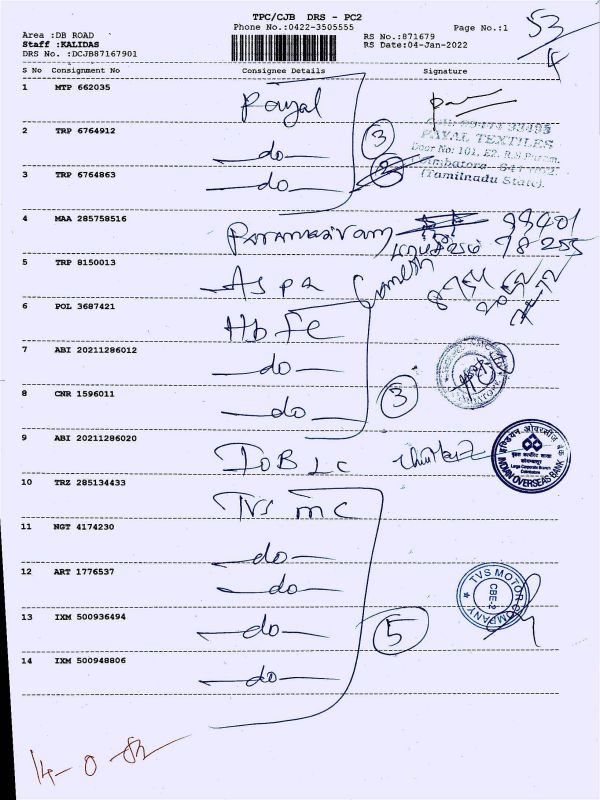 TPC/CJB DRS - PC2
Phone No.:0422-3505555
Page No.:1
53/4
Area :DB ROAD
RS No.:871679
Staff :KALIDAS
RS Date:04-Jan-2022
DRS No. :DCJB87167901
S No Consignment No Consignee Details Signature
1 MTP 662035 Payal
2 TRP 6764912 —do— 3
PAYAL TEXTILES
Door No: 101, E2, R.S.Puram,
3 TRP 6764863 —do—
(Tamilnadu State).
4 MAA 285758516 Paramasivam 98401
98255
5 TRP 8150013 Aspa Ganesh 8754
2052
6 POL 3687421 Hb Fe
7 ABI 20211286012 —do—
8 CNR 1596011 —do— 3
9 ABI 20211286020 IOB LC
इण्डियन ओवरसीज़ बैंक
Large Corporate Branch
Coimbatore
INDIAN OVERSEAS BANK
10 TRZ 285134433 TVS MC
11 NGT 4174230 —do—
12 ART 1776537 —do—
TVS MOTOR COMPANY
CBE-2
13 IXM 500936494 —do— 5
14 IXM 500948806 —do—